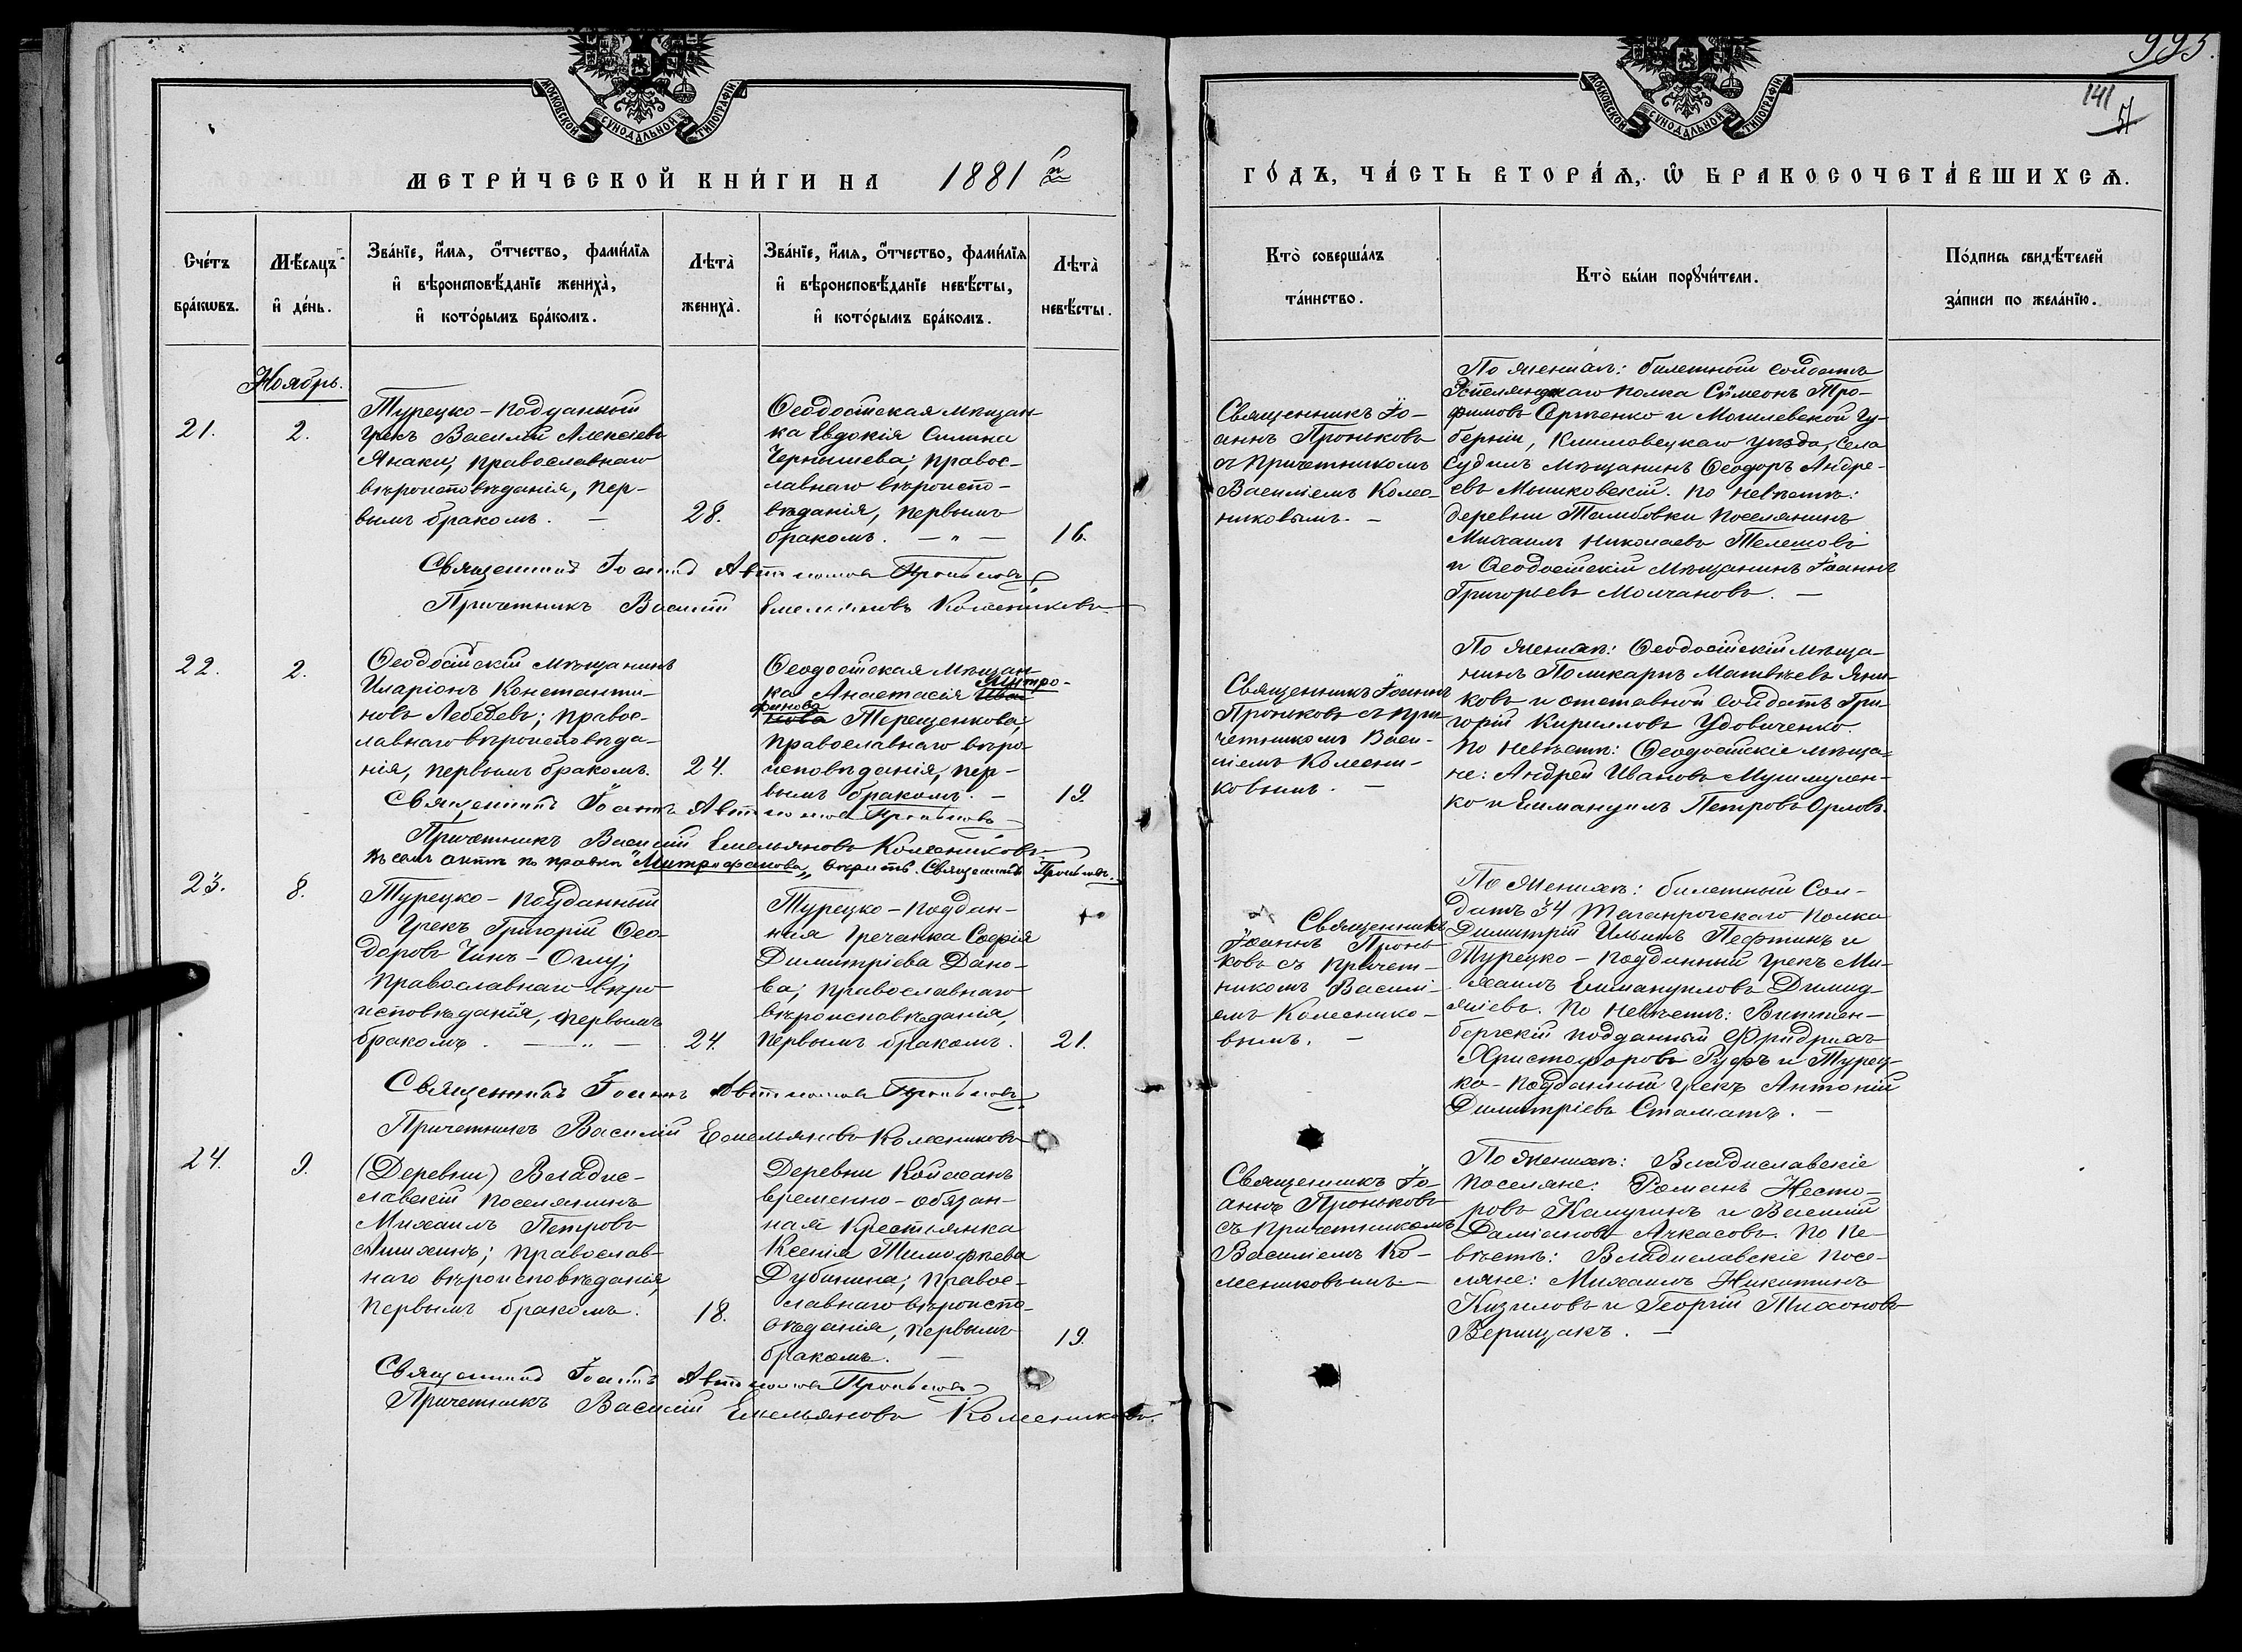 993.
141
51
МОСКОВСКОЙ СѴНОДАЛЬНОЙ ТИПОГРАФІИ
МЕТРИ́ЧЕСКОЙ КНИ́ГИ НА 1881й
Сче́тъ бра́кѡвъ.
Мѣ́сяцъ и҆ де́нь.
Зва́нїе, и҆́мѧ, ѻ҆́тчество, фами́лїѧ
и҆ вѣроисповѣ́данїе жениха̀,
и҆ кото́рымъ бра́комъ.
Лѣта̀ жениха̀.
Зва́нїе, и҆́мѧ, ѻ҆́тчество, фами́лїѧ
и҆ вѣроисповѣ́данїе невѣ́сты,
и҆ кото́рымъ бра́комъ.
Лѣта̀ невѣ́сты.
Ноябрь.
21.
2.
Турецко-подданный
грекъ Василій Алексіевъ
Янаки; православнаго
вѣроисповѣданія, пер-
вымъ бракомъ. —
28.
Ѳеодосійская мѣщан-
ка Евдокія Силина
Чернышева; правос-
лавнаго вѣроиспо-
вѣданія, первымъ
бракомъ. — „ —
16.
Священникъ Іоаннъ Автономовъ Проньковъ
Причетникъ Василій Емельяновъ Колесниковъ
22.
2.
Ѳеодосійскій мѣщанинъ
Иларіонъ Константи-
новъ Лебедевъ; правос-
лавнаго вѣроисповѣда-
нія, первымъ бракомъ.
24.
Ѳеодосійская мѣщан-
Митро-
ка Анастасія Ива
фанова
нова Терещенкова;
православнаго вѣро-
исповѣданія, пер-
вымъ бракомъ. —
19.
Священникъ Іоаннъ Автономовъ Проньковъ
Причетникъ Василій Емельяновъ Колесниковъ
Въ семъ актѣ по правкѣ „Митрофанова„ вѣрить. Священникъ Проньковъ.
23.
8.
Турецко-подданный
Грекъ Григорій Ѳео-
доровъ Чинъ-Оглу;
православнаго вѣро-
исповѣданія, первымъ
бракомъ. — „ —
24.
Турецко-поддан-
ная гречанка Софія
Димитріева Дано-
ва; православнаго
вѣроисповѣданія,
первымъ бракомъ.
21.
Священникъ Іоаннъ Автономовъ Проньковъ
Причетникъ Василій Емельяновъ Колесниковъ
24.
9.
(Деревни) Владис-
славскій поселянинъ
Михаилъ Петровъ
православ-
наго вѣроисповѣданія,
первымъ бракомъ.
18.
Деревни Койасанъ
временно-обязан-
ная крестьянка
Ксенія Тимофѣева
Дубинина; правос-
лавнаго вѣроиспо-
вѣданія, первымъ
бракомъ. —
19.
Священникъ Іоаннъ Автономовъ Проньковъ
Причетникъ Василій Емельяновъ Колесниковъ.
МОСКОВСКОЙ СѴНОДАЛЬНОЙ ТИПОГРАФІИ
ГО́ДЪ, ЧА́СТЬ ВТОРА́Ѧ, Ѡ҆ БРАКОСОЧЕТА́ВШИХСѦ.
Кто̀ соверша́лъ та́инство.
Кто̀ бы́ли порꙋчи́тели.
По́дпись свидѣ́телей
за́писи по жела́нїю.
Священникъ Іо-
аннъ Проньковъ
съ причетникомъ
Василіемъ Колес-
никовымъ. —
По женихѣ: билетный солдатъ
полка Сѵмеонъ Тро-
фимовъ Сергѣенко и Могилевской гу-
берніи, Климовецкаго уѣзда, села
Судилъ мѣщанинъ Ѳеодоръ Андре-
евъ Мышковскій. По невѣстѣ:
деревни Тамбовки поселянинъ
Михаилъ Николаевъ Телешовъ
и Ѳеодосійскій мѣщанинъ Іоаннъ
Григорьевъ Молчановъ. —
Священникъ Іоаннъ
Проньковъ съ при-
четникомъ Васи-
ліемъ Колесни-
ковымъ. —
По женихѣ: Ѳеодосійскій мѣща-
нинъ Поликарпъ Матвѣевъ Яни-
ковъ и отставной солдатъ Гри-
горій Кирилловъ Удовиченко.
По невѣстѣ: Ѳеодосійскіе мѣща-
не: Андрей Ивановъ Мушмулен-
ко и Еммануилъ Петровъ Орловъ.
Священникъ
Іоаннъ Пронь-
ковъ съ причет-
никомъ Василі-
емъ Колеснико-
вымъ. —
По женихѣ: билетный сол-
датъ 34 Таганрогскаго полка
Димитрій Ильинъ Пефтинъ и
Турецко-подданный грекъ Ми-
хаилъ Еммануиловъ Димид-
жіевъ. По невѣстѣ: Виттен-
бергскій подданный Фридрихъ
Христофоровъ Руфъ и Турец-
ко-подданный грекъ Антоній
Димитріевъ Стаматъ. —
Священникъ Іо-
аннъ Проньковъ
съ причетникомъ
Василіемъ Ко-
лесниковымъ —
По женихѣ: Владиславскіе
поселяне: Романъ Несто-
ровъ Калугинъ и Василій
Даміановъ Ачкасовъ. По не-
вѣстѣ: Владиславскіе посе-
ляне: Михаилъ Никитинъ
Кизиловъ и Георгій Тихоновъ
Верищакъ. —